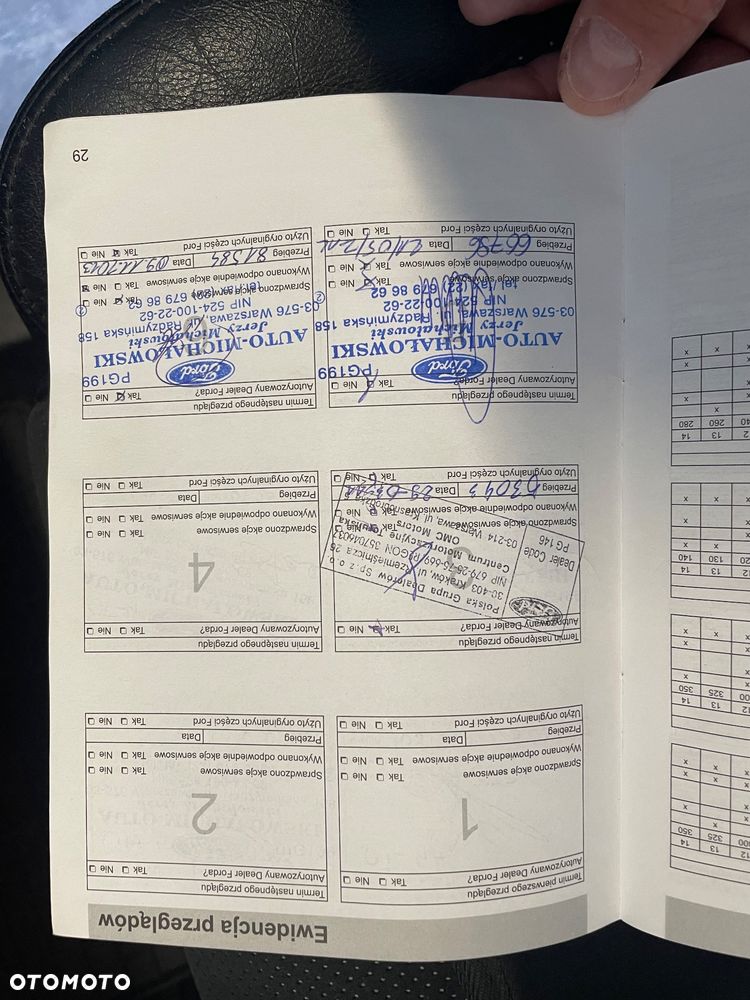 Ewidencja przeglądów
Termin pierwszego przeglądu
Autoryzowany Dealer Forda? Tak ☐ Nie ☐
1
Sprawdzono akcje serwisowe Tak ☐ Nie ☐
Wykonano odpowiednie akcje serwisowe Tak ☐ Nie ☐
Przebieg Data
Użyto oryginalnych części Ford Tak ☐ Nie ☐
Termin następnego przeglądu
Autoryzowany Dealer Forda? Tak ☐ Nie ☐
2
Sprawdzono akcje serwisowe Tak ☐ Nie ☐
Wykonano odpowiednie akcje serwisowe Tak ☐ Nie ☐
Przebieg Data
Użyto oryginalnych części Ford Tak ☐ Nie ☐
Termin następnego przeglądu
Autoryzowany Dealer Forda? Tak Nie ☐
Dealer Code
PG146
Polska Grupa Dealerów Sp. z o.o.
30-403 Kraków, ul. Rzemieślnicza
NIP 679-25-75-669 REGON
Centrum Motoryzacyjne Toruńska
OMC Motors
03-214 Warszawa, ul.
Wykonano odpowiednie akcje serwisowe Tak Nie ☐
Przebieg Data
Użyto oryginalnych części Ford Tak Nie ☐
Termin następnego przeglądu
Autoryzowany Dealer Forda? Tak ☐ Nie ☐
4
Sprawdzono akcje serwisowe Tak ☐ Nie ☐
Wykonano odpowiednie akcje serwisowe Tak ☐ Nie ☐
Przebieg Data
Użyto oryginalnych części Ford Tak ☐ Nie ☐
Termin następnego przeglądu
Autoryzowany Dealer Forda? Tak Nie ☐
Ford PG199
AUTO-MICHAŁOWSKI
Jerzy Michałowski
03-576 Warszawa, ul. Radzymińska 158
NIP 524-100-22-62
tel./fax (22) 679 86 62
Sprawdzono akcje serwisowe Tak Nie ☐
Wykonano odpowiednie akcje serwisowe Tak Nie ☐
Przebieg 66796 Data
Użyto oryginalnych części Ford Tak Nie ☐
Termin następnego przeglądu
Autoryzowany Dealer Forda? Tak Nie ☐
Ford PG199
AUTO-MICHAŁOWSKI
Jerzy Michałowski
03-576 Warszawa, ul. Radzymińska 158
NIP 524-100-22-62
tel./fax (22) 679 86 62
Sprawdzono akcje serwisowe Tak Nie ☐
Wykonano odpowiednie akcje serwisowe Tak Nie
Przebieg 81585 Data 09.11.2013
Użyto oryginalnych części Ford Tak Nie ☐
29
12 13 14
325 350
12 13 14
325 350
12 13 14
130 140
12 13 14
260 280
OTOMOTO